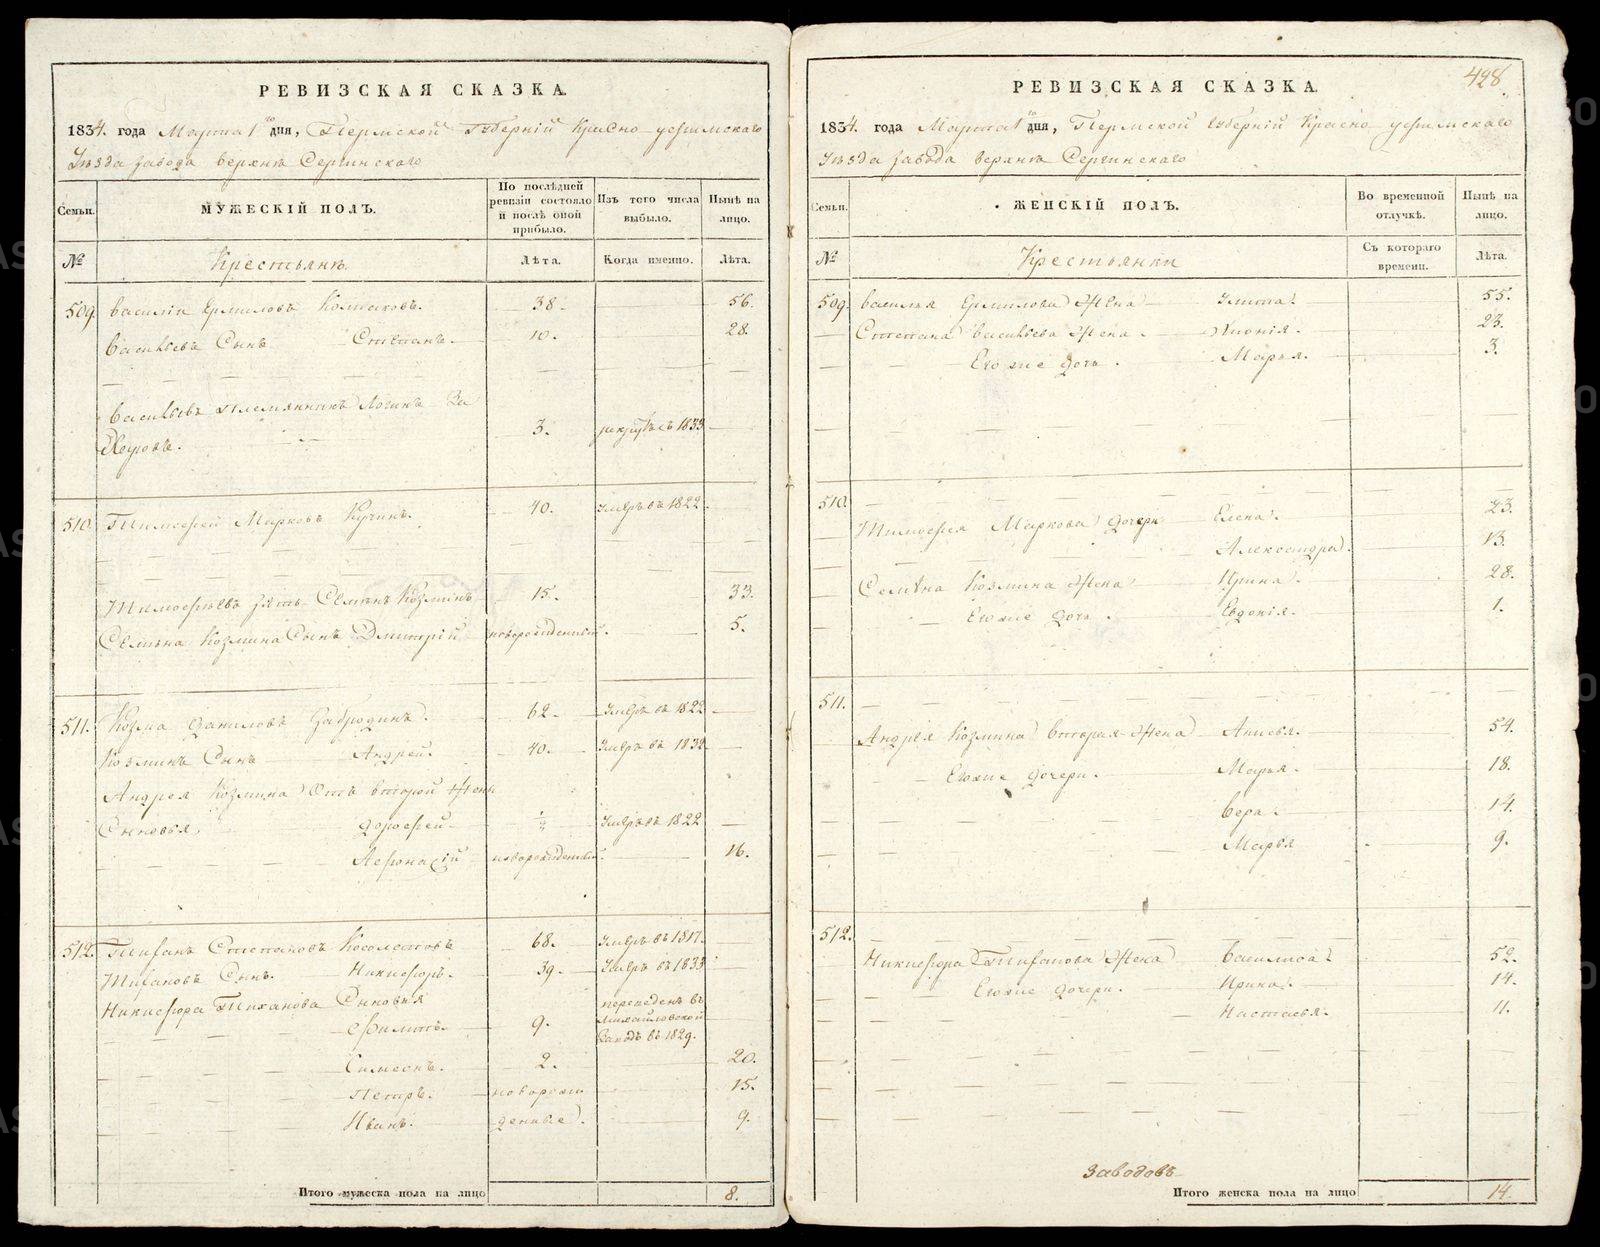 РЕВИЗСКАЯ СКАЗКА.
1834. года Марта 1го дня, Пермской Губернiй Красно уфимскаго
Уѣзда завода верхнѣ Сергинскаго
Семьи.
МУЖЕСКIЙ ПОЛЪ.
По послѣдней ревизiи состояло и послѣ оной прибыло.
Изъ того числа выбыло.
Нынѣ на лицо.
№
Крестьянѣ.
Лѣта.
Когда именно.
Лѣта.
509. Василiи Ермиловъ 38. 56.
Васильевъ Сынъ Степанъ. 10. 28.
Васильевъ племянникъ Логинъ За
харовъ. 3. рекрутъ съ 1833
510. Тимофей Марковъ Кучинъ. 40. Умеръ въ 1822.
Тимофѣевъ зять Семенъ Козминъ 15. 33.
Семена Козмина Сынъ Дмитрiй новорожденный. 5.
511. Козма Даниловъ Забродинъ. 62. Умеръ въ 1822
Козминъ Сынъ Андрей. 40. Умеръ въ
Андрея Козмина Отъ второй жены
Сыновья Дорофей Умеръ въ 1822
Афонасiй новорожденный. 16.
512. Тифанъ Степановъ 68. Умеръ въ 1817.
Тифановъ Сынъ. Никифоръ. 39. Умеръ въ 1833
Никифора Тиханова Сыновья
Филипъ. 9. переведенъ въ Михайловской Заводъ въ 1829.
Симеонъ. 2. 20.
Петръ. новорож 15.
Иванъ. денные. 9.
Итого мужеска пола на лицо 8.
428.
РЕВИЗСКАЯ СКАЗКА.
1834. года Марта 1го дня, Пермской Губернiй Красно уфимскаго
Уѣзда завода верхнѣ Сергинскаго
Семьи.
ЖЕНСКIЙ ПОЛЪ.
Во временной отлучкѣ.
Нынѣ на лицо.
№
Крестьянки
Съ котораго времени.
Лѣта.
509. Василья Ермилова Жена Улита. 55.
Степана Васильева Жена 23.
Его же дочь. Марья. 3.
510.
Тимофея Маркова дочери Елена. 23.
Александра. 13.
Семена Козмина Жена Ирина. 28.
Его же дочь. Евдокiя. 1.
511.
Андрея Козмина вторая Жена Анисья. 54.
Его же дочери. Марья. 18.
Вера. 14.
Марья 9.
512.
Никифора Тифанова Жена Василиса. 52.
Его же дочери. Ирина. 14.
Настасья. 11.
Заводовъ
Итого женска пола на лицо 14.